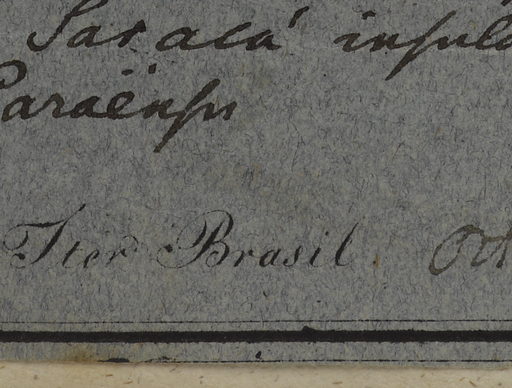 Saracá insula
Paraënsis
Iter Brasil. Oct